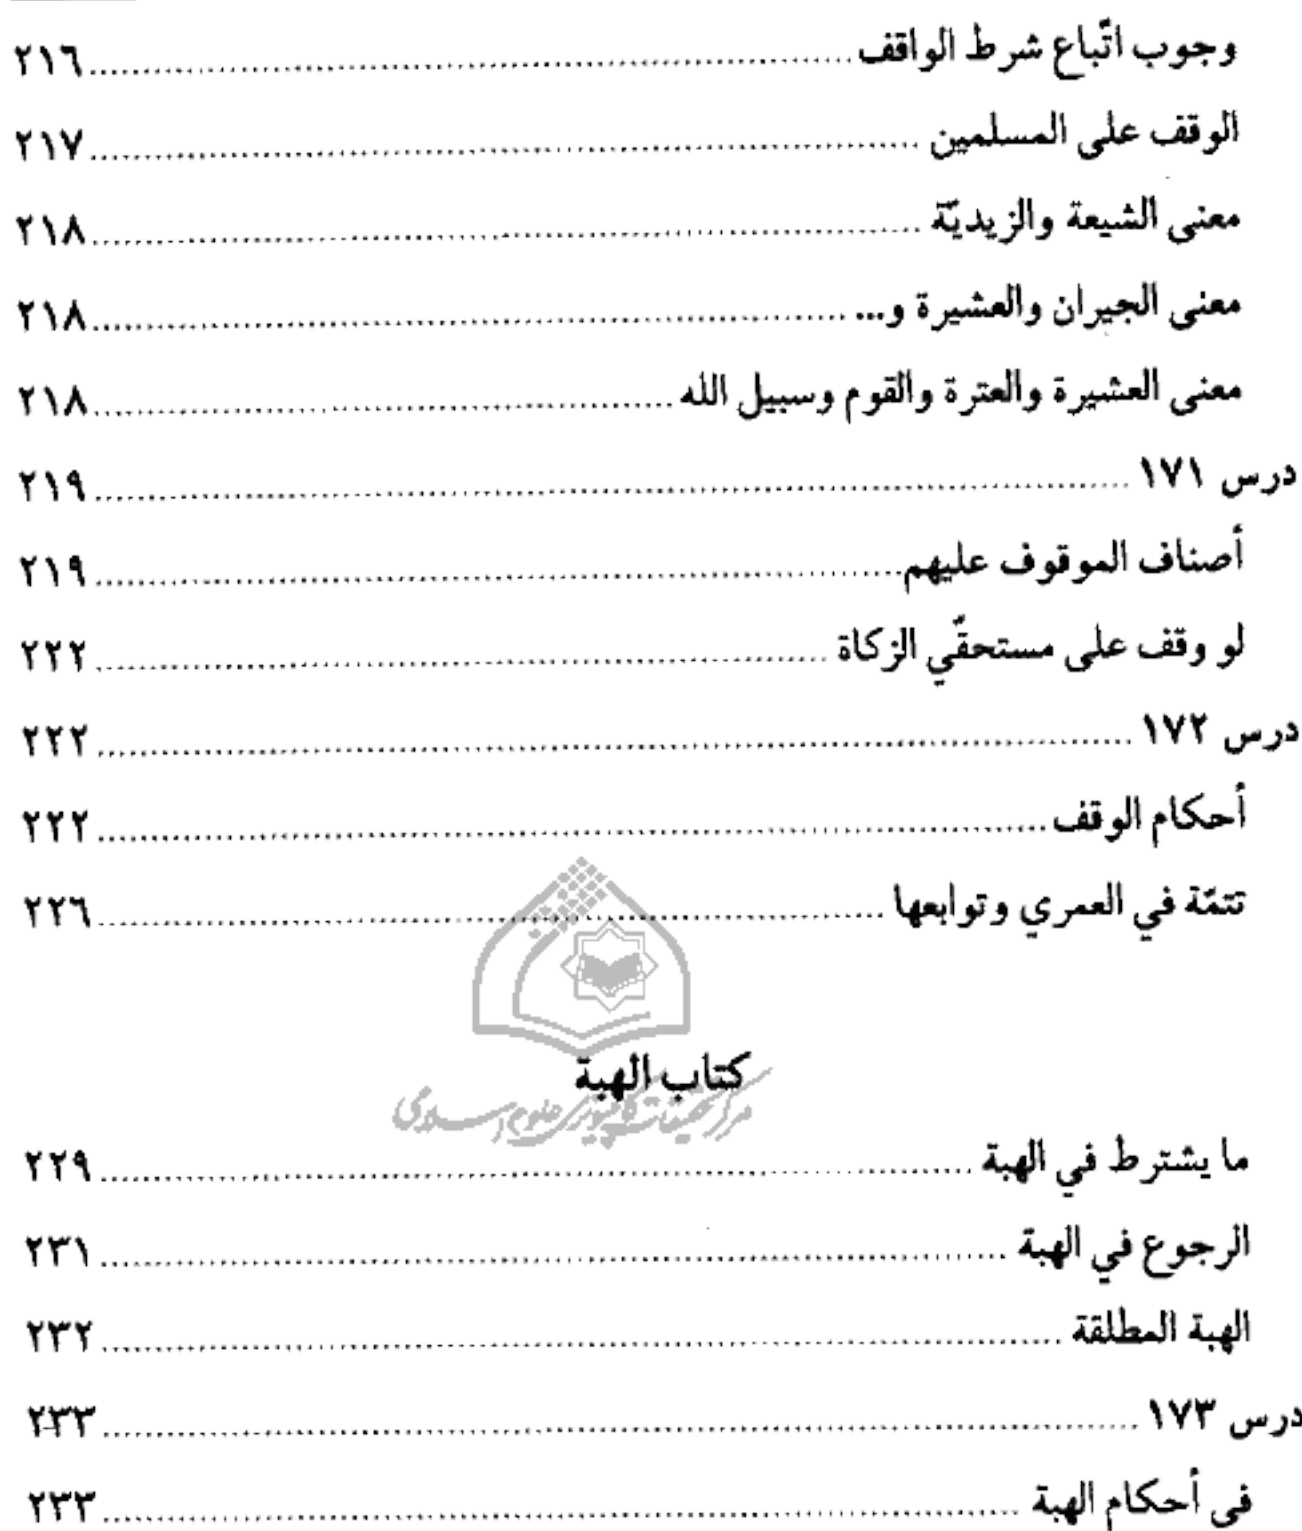 وجوب اتّباع شرط الواقف ........ ٢١٦
الوقف على المسلمين ........ ٢١٧
معنى الشيعة والزيديّة ........ ٢١٨
معنى الجيران والعشيرة و... ........ ٢١٨
معنى العشيرة والعترة والقوم وسبيل الله ........ ٢١٨
درس ١٧١ ........ ٢١٩
أصناف الموقوف عليهم ........ ٢١٩
لو وقف على مستحقّي الزكاة ........ ٢٢٢
درس ١٧٢ ........ ٢٢٢
أحكام الوقف ........ ٢٢٢
تتمّة في العمري وتوابعها ........ ٢٢٦
كتاب الهبة
مركز تحقیقات کامپیوتری علوم اسلامی
ما يشترط في الهبة ........ ٢٢٩
الرجوع في الهبة ........ ٢٣١
الهبة المطلقة ........ ٢٣٢
درس ١٧٣ ........ ٢٣٣
في أحكام الهبة ........ ٢٣٣